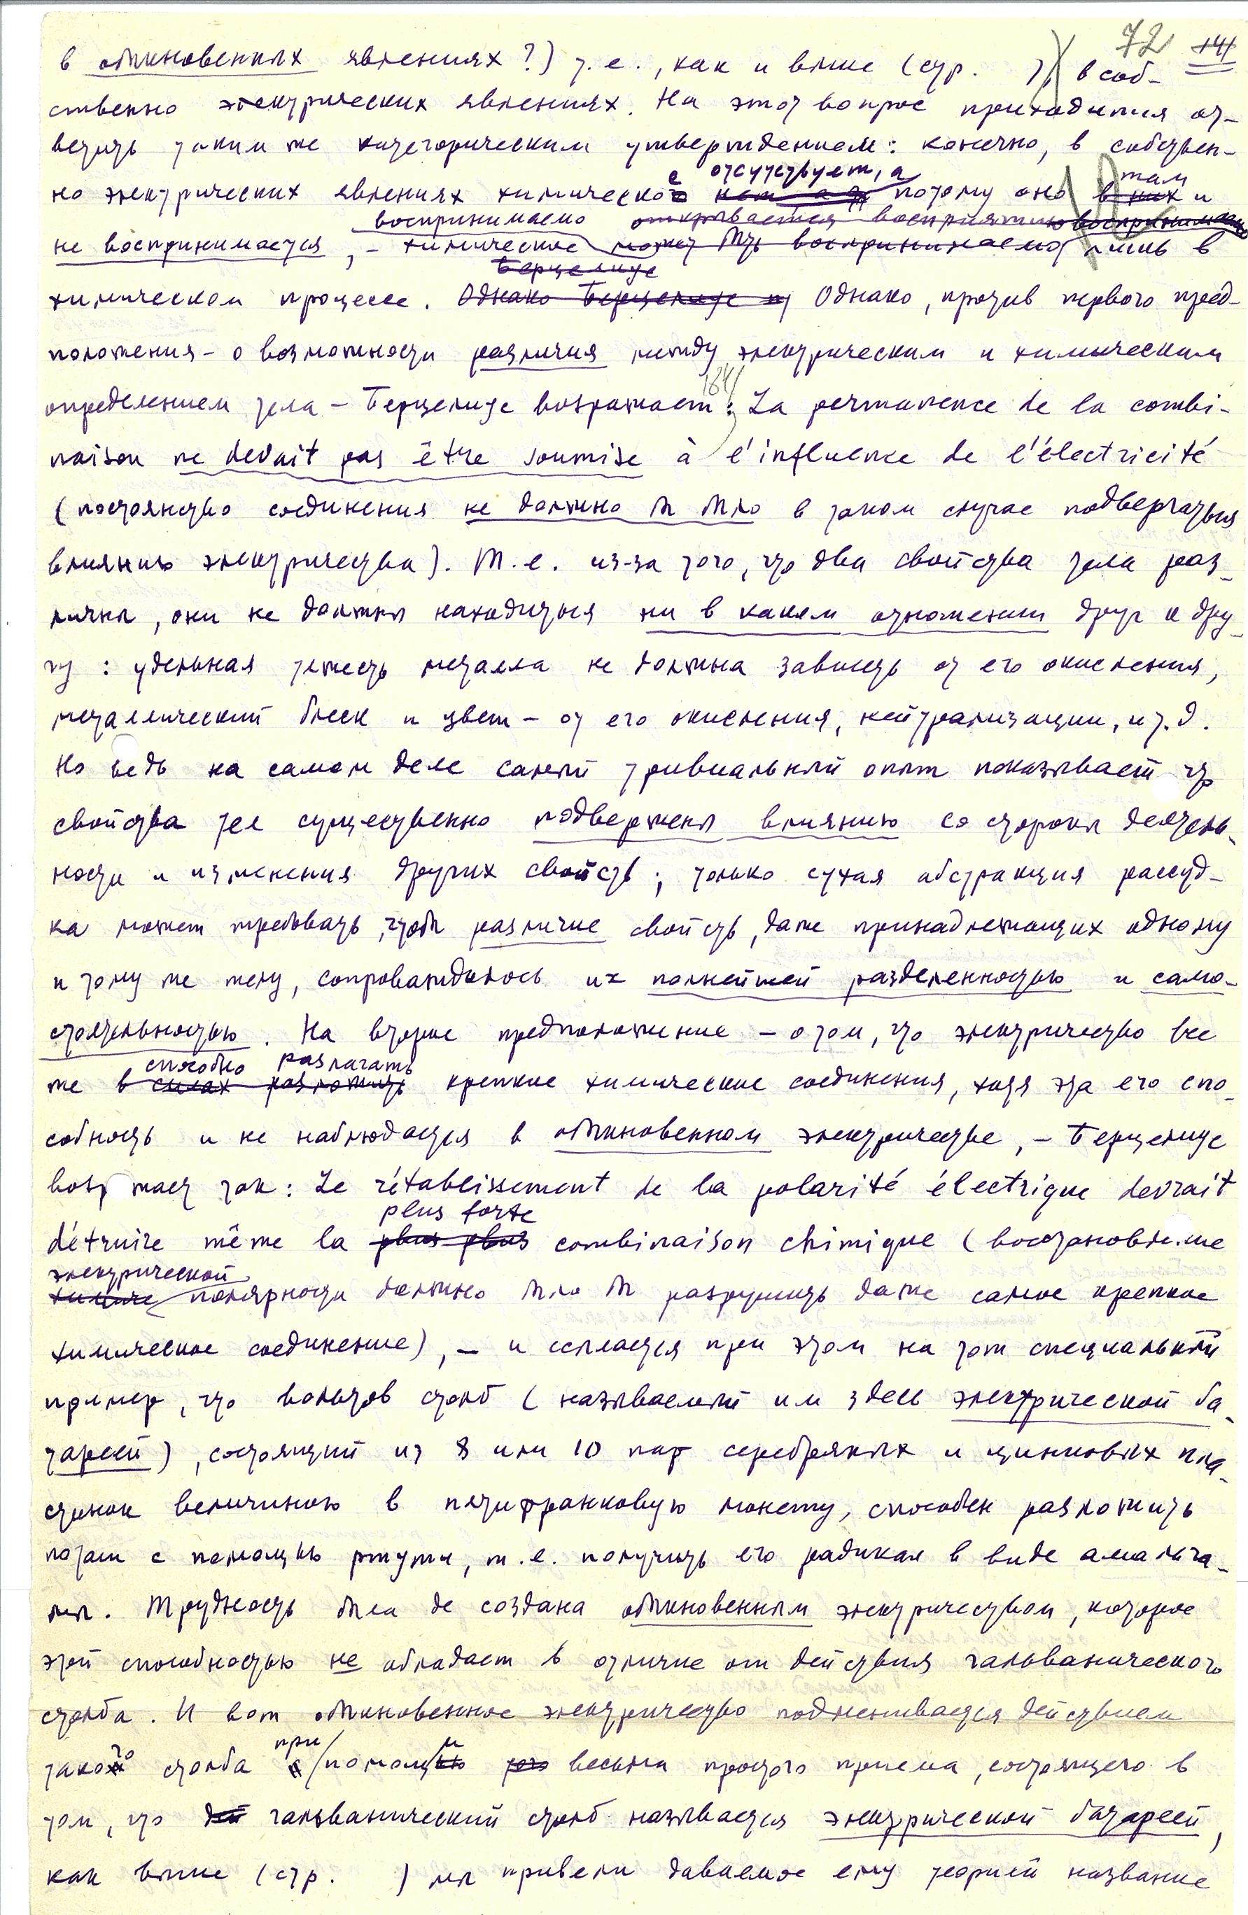 72 141
в обыкновенных явлениях?) т.е., как и выше (стр. ), в соб-
ственно электрических явлениях. На этот вопрос приходится от-
ветить таким же категорическим утверждением: конечно, в собствен-
отсутствует, а там
но электрических явлениях химическое нет а и потому оно в них и
воспринимаемо открывается восприятию воспринимаемо
не воспринимается, – химическое может быть воспринимаемо лишь в
Берцелиус
химическом процессе. Однако Берцелиус Однако, против первого пред-
положения – о возможности различия между электрическим и химическим
184)
определением тела – Берцелиус возражает: La permanence de la combi-
naison ne devait pas être soumise à l'influence de l'électricité
(постоянство соединения не должно б было в таком случае подвергаться
влиянию электричества). Т.е. из-за того, что два свойства тела раз-
личны, они не должны находиться ни в каком отношении друг к дру-
гу: удельная тяжесть металла не должна зависеть от его окисления,
металлический блеск и цвет – от его окисления, нейтрализации, и т.д.
Но ведь на самом деле самый тривиальный опыт показывает что
свойства тел существенно подвержены влиянию со стороны деятель-
ности и изменения других свойств; только сухая абстракция рассуд-
ка может требовать, чтобы различие свойств, даже принадлежащих одному
и тому же телу, сопровождалось их полнейшей разделенностью и само-
стоятельностью. На второе предположение – о том, что электричество все
способно разлагать
же в силах разложить крепкие химические соединения, хотя эта его спо-
собность и не наблюдается в обыкновенном электричестве, – Берцелиус
возражает так: Le rétablissement de la polarité électrique devrait
plus forte
détruire même la plus plus combinaison chimique (восстановление
электрической
химиче полярности должно было б разрушить даже самое крепкое
химическое соединение), – и ссылается при этом на тот специальный
пример, что вольтов столб (называемый им здесь электрической ба-
тареей), состоящий из 8 или 10 пар серебряных и цинковых пла-
стинок величиною в пятифранковую монету, способен разложить
поташ с помощью ртути, т.е. получить его радикал в виде амальга-
мы. Трудность была де создана обыкновенным электричеством, которое
этой способностью не обладает в отличие от действия гальванического
столба. И вот обыкновенное электричество подменивается действием
го при и
такого столба с помощью того весьма простого приема, состоящего в
том, что гальванический столб называется электрической батареей,
как выше (стр. ) мы привели даваемое ему теорией название